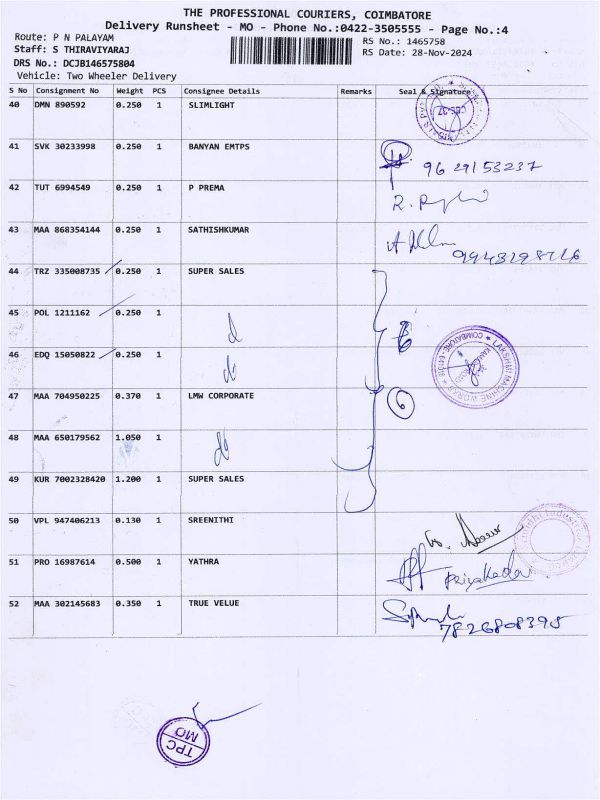 THE PROFESSIONAL COURIERS, COIMBATORE
Delivery Runsheet - MO - Phone No.:0422-3505555 - Page No.:4
Route: P N PALAYAM
RS No.: 1465758
Staff: S THIRAVIYARAJ
RS Date: 28-Nov-2024
DRS No.: DCJB146575804
Vehicle: Two Wheeler Delivery
S No Consignment No Weight PCS Consignee Details Remarks Seal & Signature
40 DMN 890592 0.250 1 SLIMLIGHT
41 SVK 30233998 0.250 1 BANYAN EMTPS
9629153237
42 TUT 6994549 0.250 1 P PREMA
43 MAA 868354144 0.250 1 SATHISHKUMAR
44 TRZ 335008735 0.250 1 SUPER SALES
45 POL 1211162 0.250 1
46 EDQ 15050822 0.250 1
LAKSHMI MACHINE WORKS
47 MAA 704950225 0.370 1 LMW CORPORATE
6
48 MAA 650179562 1.050 1
49 KUR 7002328420 1.200 1 SUPER SALES
50 VPL 947406213 0.130 1 SREENITHI
51 PRO 16987614 0.500 1 YATHRA
52 MAA 302145683 0.350 1 TRUE VELUE
7826808395
TPC
MO